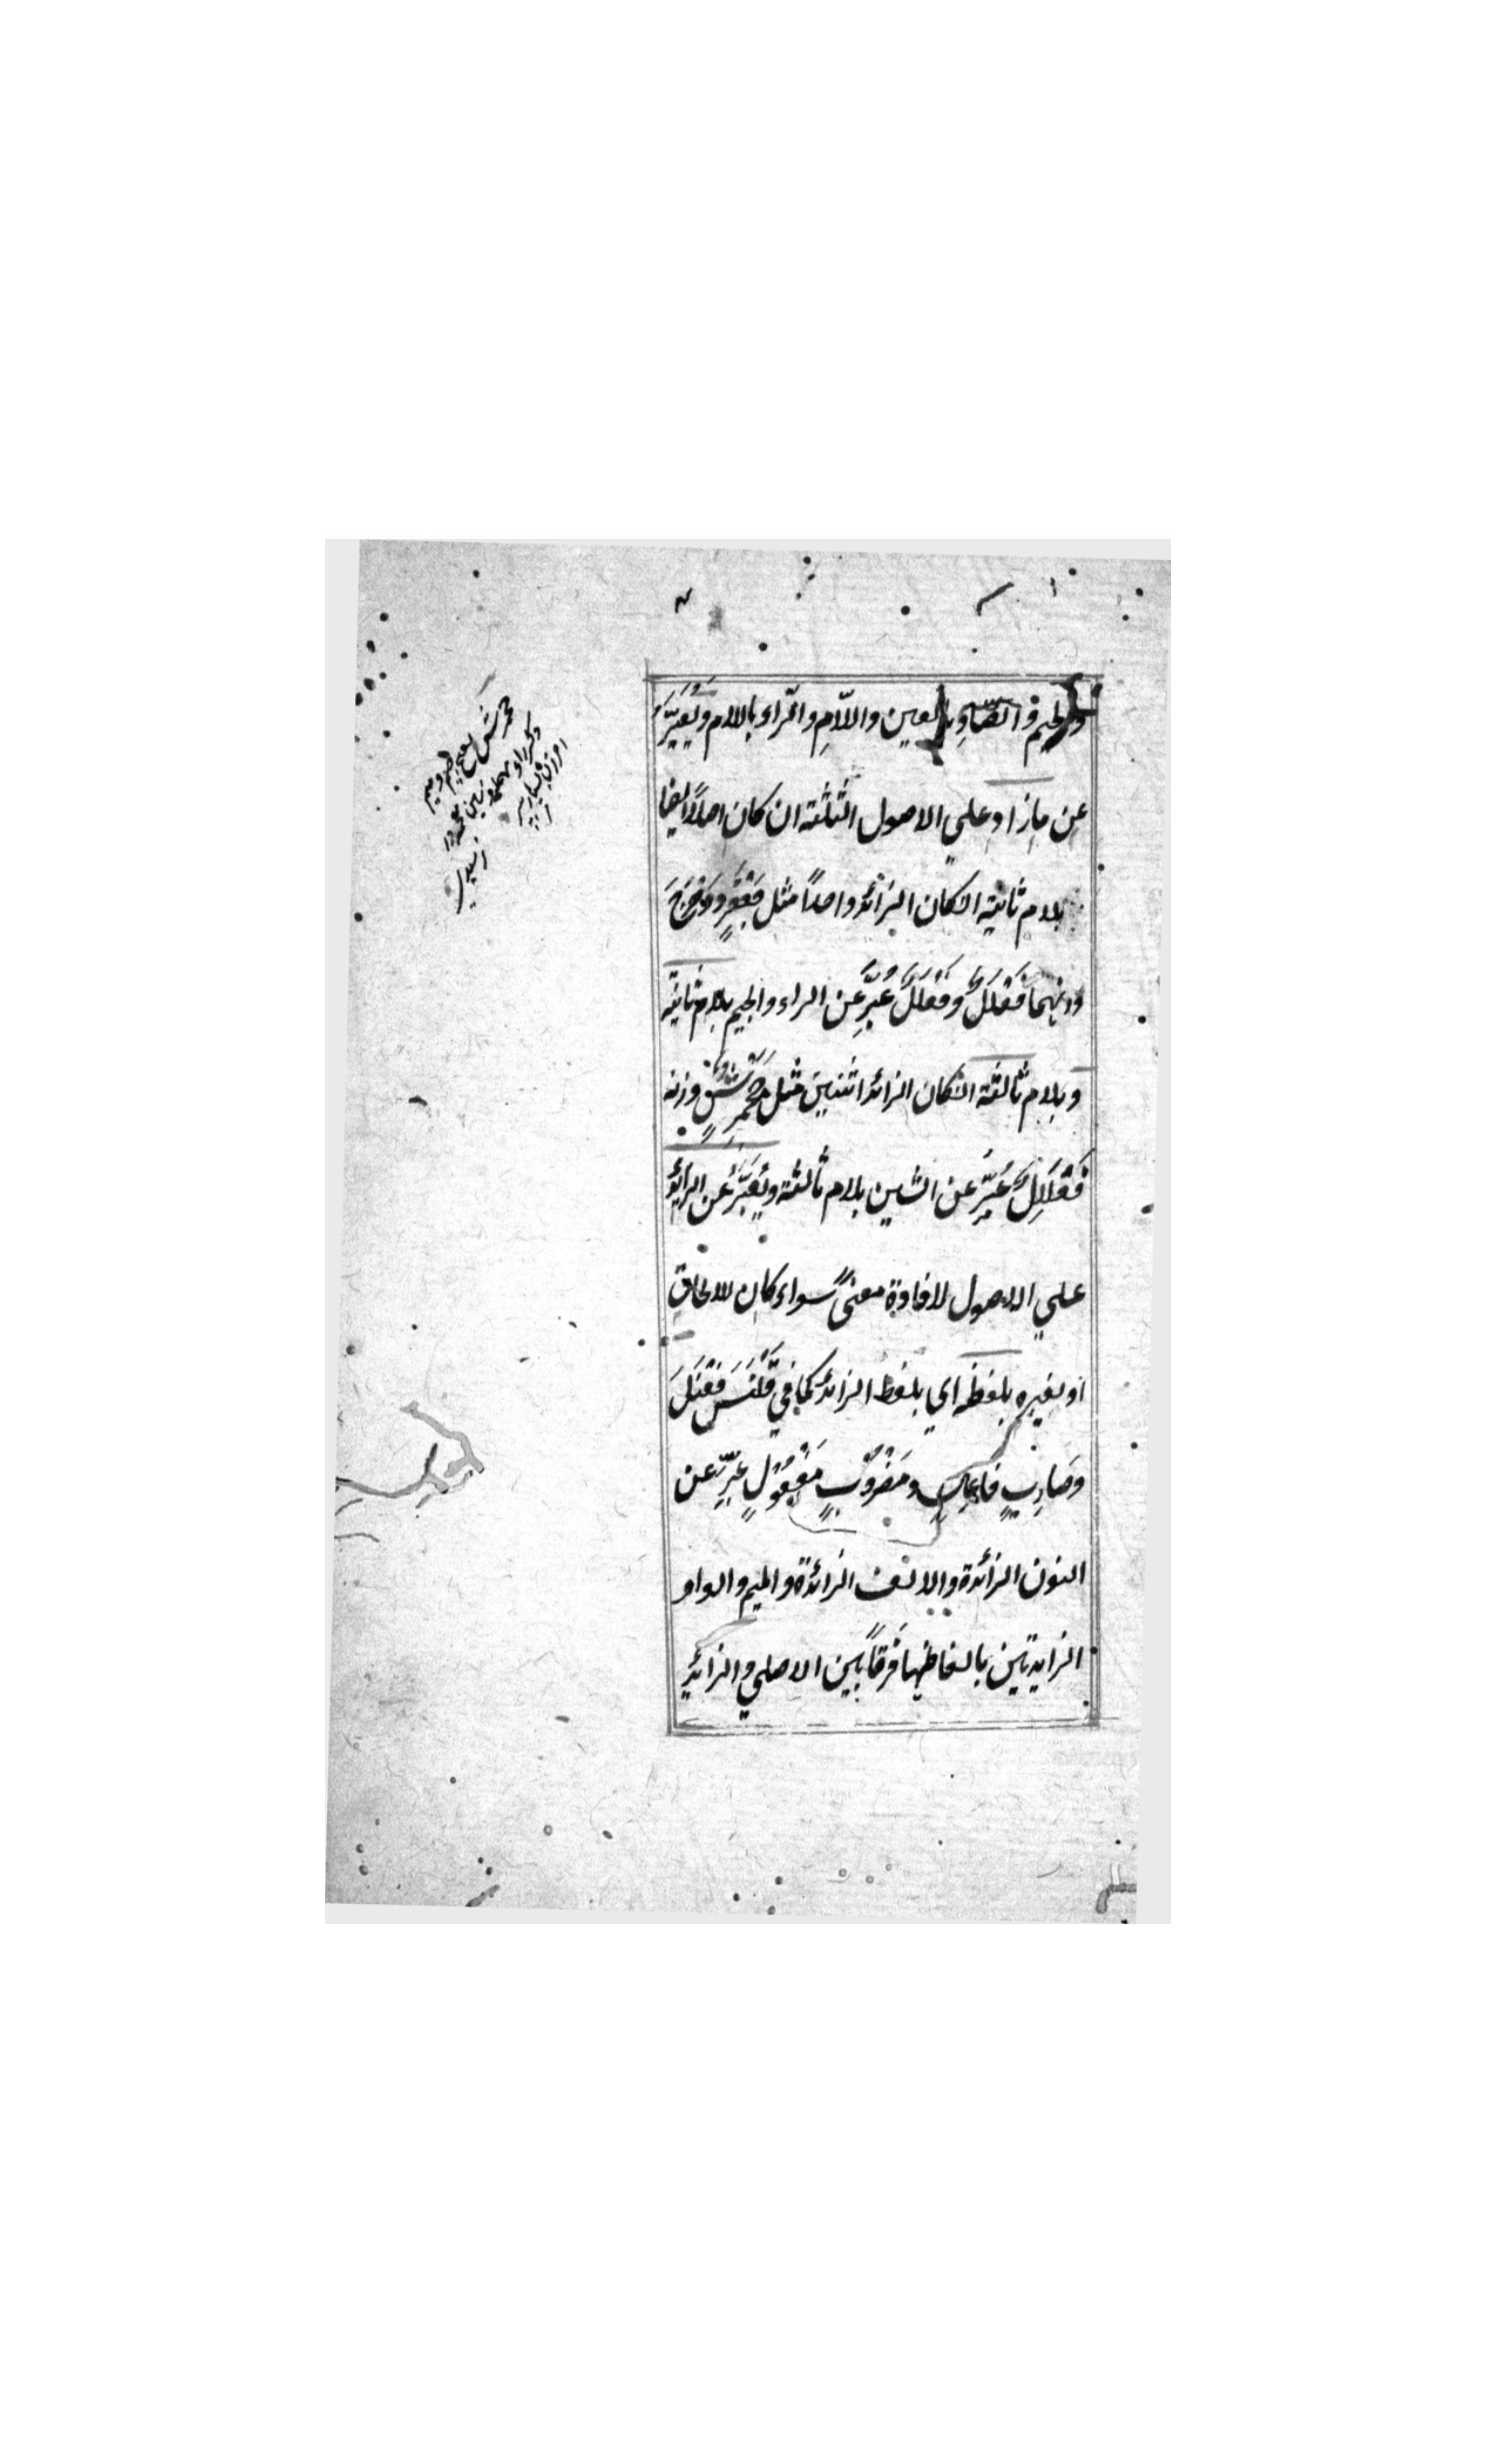 والجيم والصاد بالعين واللّامِ والرّاء بالام ويُعَبَّرُ
عن ما زاد علي الاصول الثلثة ان كان اصلاً ايضا
بلام ثانية انكان الزائد واحداً مثل جَعْفَرٍ ودَحْرَجَ
وزنهما فَعْلَلٌ وفَعْلَلَ عُبِّرَ عن الراء والجيم بلام ثانية
وبلام ثالثة انكان الزائد اثنين مثل جَحْمَرِشٍ وزنه
فَعْلَلِلٌ عُبِّرَ عن الشين بلام ثالثة ويُعَبَّرُ عن الزائدِ
علي الاصول لافادة معنىً سواء كان للالحاقِ
او لغيره بلفظه اي بلفظ الزائد كما في قَلْنَسَ فَعْنَلَ
وضَارِبٍ فاعِلٍ ومَضْرُوْبٍ مَفْعُوْلٍ عُبِّرَ عن
النون الزائدة والالف الزائدة والميم والواو
الزايدتين بالفاظها فرقاً بين الاصلي والزائدِ
جحمرش بفتح جيم